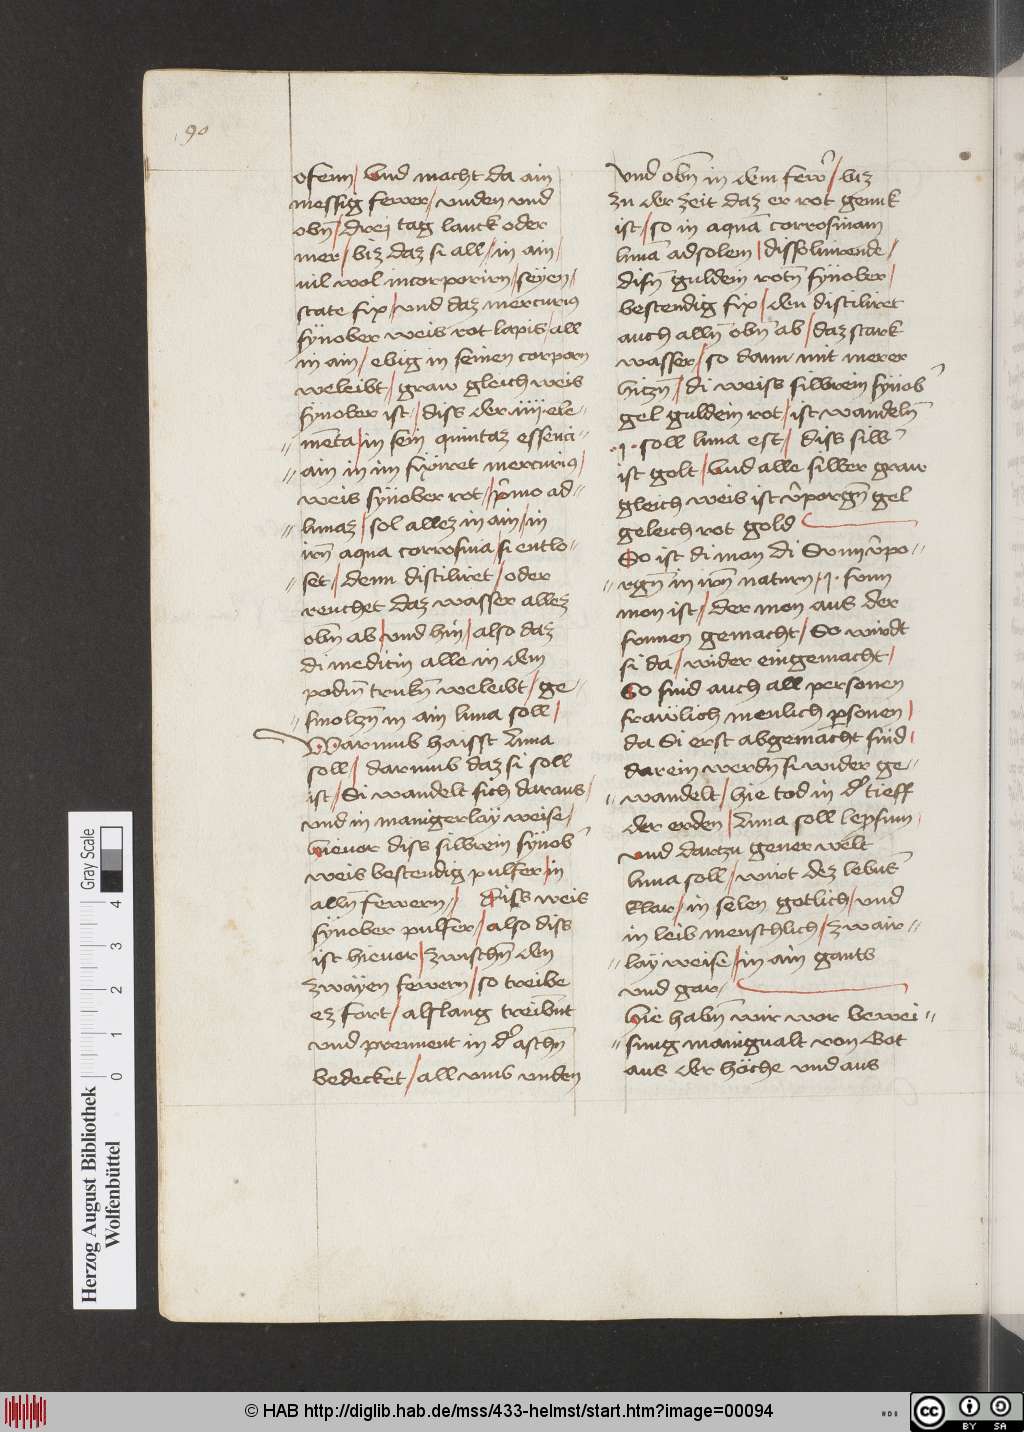 90
ofenn / Und macht da ain
messig fewer / vnden vnd
obn̄ / drei tag lanck oder
mer / biz daz si all / in ain /
vil wol incorporirn / seyen /
state fix / vnd daz mercurius
sÿnober weis rot lapis / all
in ain / ebig in seinen corporn
weleibt / graw gleich weis
sÿnober ist / diss der iiii ele-
menta / in sein quintaz essenci-
am in im fyxiret mercurius /
weis sÿnober rot / p̄mo ad-
lunaz / sol allez in ain / in
irn̄ aqua corrosiua / si entlo-
set / denn distiliret / oder
reuchet daz wasser allez
obn̄ ab / vnd hin / also daz
di medicin alle in dem
podin̄ trukn̄ weleibt / ge-
smoltzn̄ in ain luna soll /
Warumb haisst Luna
soll / darumb daz si soll
ist / Si wandelt sich daraus /
vnd in manigerlaÿ weise /
hieuor diss silbrein sÿnob̛
weis bestendig pulfer / in
alln̄ fewern / Diss weis
sÿnober pulfer / also diss
ist hieuor / zwischn̄ den
zwäyen fewern / so treibe
ez fort / alslang treibn̄t
vnd prennent in d̛ aschn̄
bedecket / all vmb vnden
Vnd obn̄ in dem few̛ / biz
zu der zeit daz er rot genuk
ist / so in aquam corrosiuam
lunā ad solem / dissoluirende /
disn̄ guldein rotn̄ sÿnober /
bestendig fix / den distiliret
auch alln̄ obn̄ ab / daz stark
wasser / so dann mit merer
hitzn̄ / di weiss silbrein sÿnob̛
gel guldein rot / ist wandeln̄
.i. soll luna est / diss silb̛
ist golt / Und alle silber graw
gleich weis ist v̛porgn̄ gel
geleich rot gold
So ist di mon di Sunn v̛po-
rgn̄ in irn̄ naturn / .i. sunn
mon ist / der mon aus der
sunnen gemacht / So wirdt
si da / wider eingemacht /
So sind auch all personen
frawlich menlich p̱sonen /
da Si erst abgemacht sind
darein werdn̄ si wider ge-
wandelt / hie tod in d̛ tieff
der erden / Luna soll lep̱ sunn /
vnd dartzu gener welt
luna soll / wirt dez lebūs
klar / in selen gotlich / vnd
in leib menschlich / zwair-
laÿ weise / in ain gantz
vnd gar /
Hie habn̄ wir vor bewei-
sung manigualt von Got
aus der höche vnd aus
Herzog August Bibliothek
Wolfenbüttel
Gray Scale
0 1 2 3 4
© HAB http://diglib.hab.de/mss/433-helmst/start.htm?image=00094
cc
BY SA